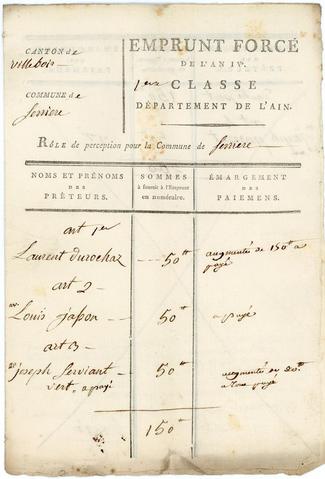 CANTON de
Villebois
COMMUNE de
Serriere
EMPRUNT FORCÉ
DE L'AN IV.
1ere CLASSE
DÉPARTEMENT DE L'AIN.
RÔLE de perception pour la Commune de Serriere
NOMS ET PRÉNOMS
DES
PRÊTEURS.
SOMMES
à fournir à l'Emprunt
en numéraire.
ÉMARGEMENT
DES
PAIEMENS.
art 1er
Laurent durochaz 50tt augmentés de 150tt a
payé
art 2
Louis japon 50tt a payé
art 3
joseph Serviant 50tt
vert, a payé
augmenté de
a payé
150tt